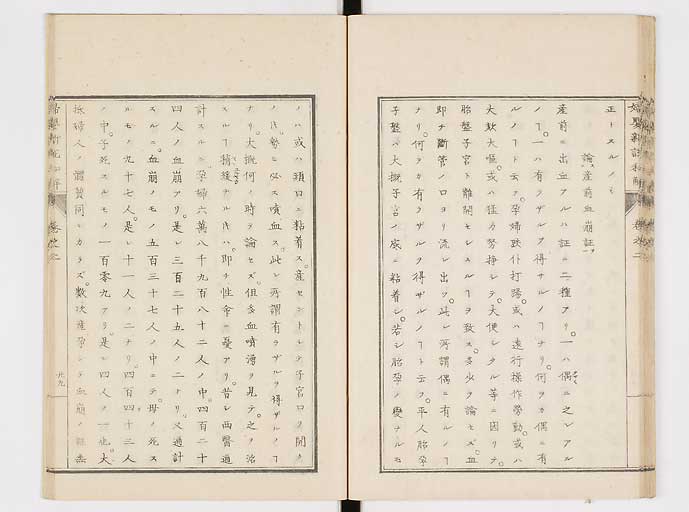 正トスルノミ
論産前血崩証
産前ニ出血アルハ証ニ二種アリ。一ハ偶ニ之レアル
ノ。一ハ有ラザルヲ得サルノナリ。何ヲカ偶ニ有
ルノト云フ。孕婦跌仆打踢。或ハ遠行操作勞動。或ハ
大欬大嘔。或ハ猛力努掙シテ大便シタル等ニ因リテ。
胎盤子宮ト離開セシムルヲ致ス。多少ヲ論セズ。血
即チ斷管ノ口ヨリ流レ出ツ。此レ所謂偶ニ有ルノ
ナリ。何ヲカ有ラザルヲ得ザルノト云フ。平人胎孕
子盤ハ大概子宮ノ底ニ粘着シ。若シ胎孕ノ變ナルモ
ノハ或ハ頸口ニ粘着ス。産セントシテ子宮口ノ開ノ
ノ勢ニ必ス噴血ス。此レ所謂有ラザルヲ得ザル
ナリ。大概何ノ時ヲ論セズ。但多血噴湧ヲ見テ。之ヲ治
スル稍緩ナルハ。即チ性命ニ憂アリ。昔シ西醫通
計スルニ孕婦六萬八千九百八十二人ノ中。四百二十
四人ノ血崩アリ。是レ三百二十五人ノ二ナリ。又通計
スルニ血崩ノモノ五百三十七人ノ中ニテ。母ノ死ス
ルモノ九十七人。是レ十一人ノ二ナリ。四百四十三人
ノ中。子死スルモノ一百零九アリ。是レ四人ノ一也。大
抵婦人ノ體質同シカラズ。數次産孕シテ血崩ノ
卷之二